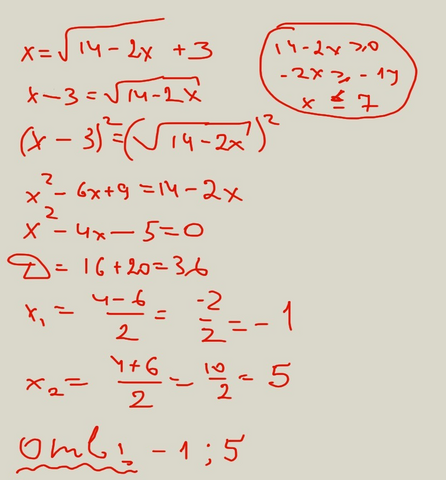 x = √14 - 2x + 3
x - 3 = √14 - 2x
(x - 3)² = (√14 - 2x)²
x² - 6x + 9 = 14 - 2x
x² - 4x - 5 = 0
D = 16 + 20 = 36
x₁ = (4 - 6)/2 = -2/2 = -1
x₂ = (4 + 6)/2 = 10/2 = 5
Ответ: -1; 5
14 - 2x ≥ 0
-2x ≥ -14
x ≤ 7